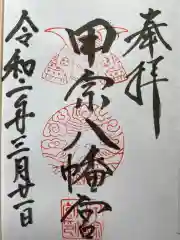 奉拝
甲宗八幡宮
令和二年三月廿一日